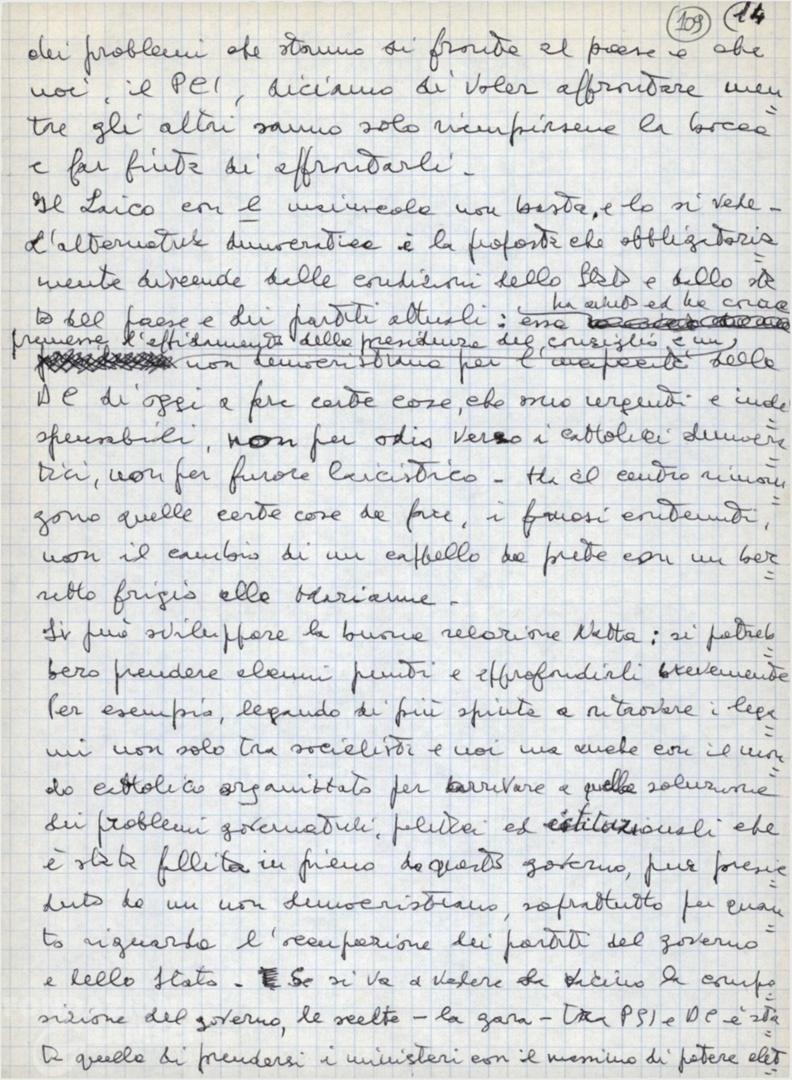 109 14
dei problemi che stanno di fronte al paese e che
noi, il PCI, diciamo di voler affrontare men
tre gli altri sanno solo riempirsene la bocca
e far finta di affrontarli.
Il Laico con l maiuscola non basta, e lo si vede -
L'alternativa democratica è la proposta che obbligatoria
mente discende dalle condizioni dello Stato e dello sta
to del paese e dei partiti attuali: essa ha avuto ed ha come
premessa l'affidamento della presidenza del consiglio a un
non democristiano per l'incapacità della
DC di oggi a fare certe cose, che sono urgenti e indi
spensabili, non per odio verso i cattolici democra
tici, non per furore laicistico - Ma al centro riman
gono quelle certe cose da fare, i famosi contenuti,
non il cambio di un cappello da prete con un ber
retto frigio alla Marianne -
Si può sviluppare la buona relazione Natta: si potreb
bero prendere alcuni punti e approfondirli brevemente
Per esempio, legando di più spinta a ritrovare i lega
mi non solo tra socialisti e noi ma anche con il mon
do cattolico organizzato per arrivare a quella soluzione
dei problemi governativi, politici ed istituzionali che
è stata fallita in pieno da questo governo, pure presie
duto da un non democristiano, soprattutto per quan
to riguarda l'occupazione dei partiti del governo
e dello Stato - Se si va a vedere da vicino la compo
sizione del governo, le scelte - la gara - tra PSI e DC è sta
ta quella di prendersi i ministeri con il massimo di potere elet